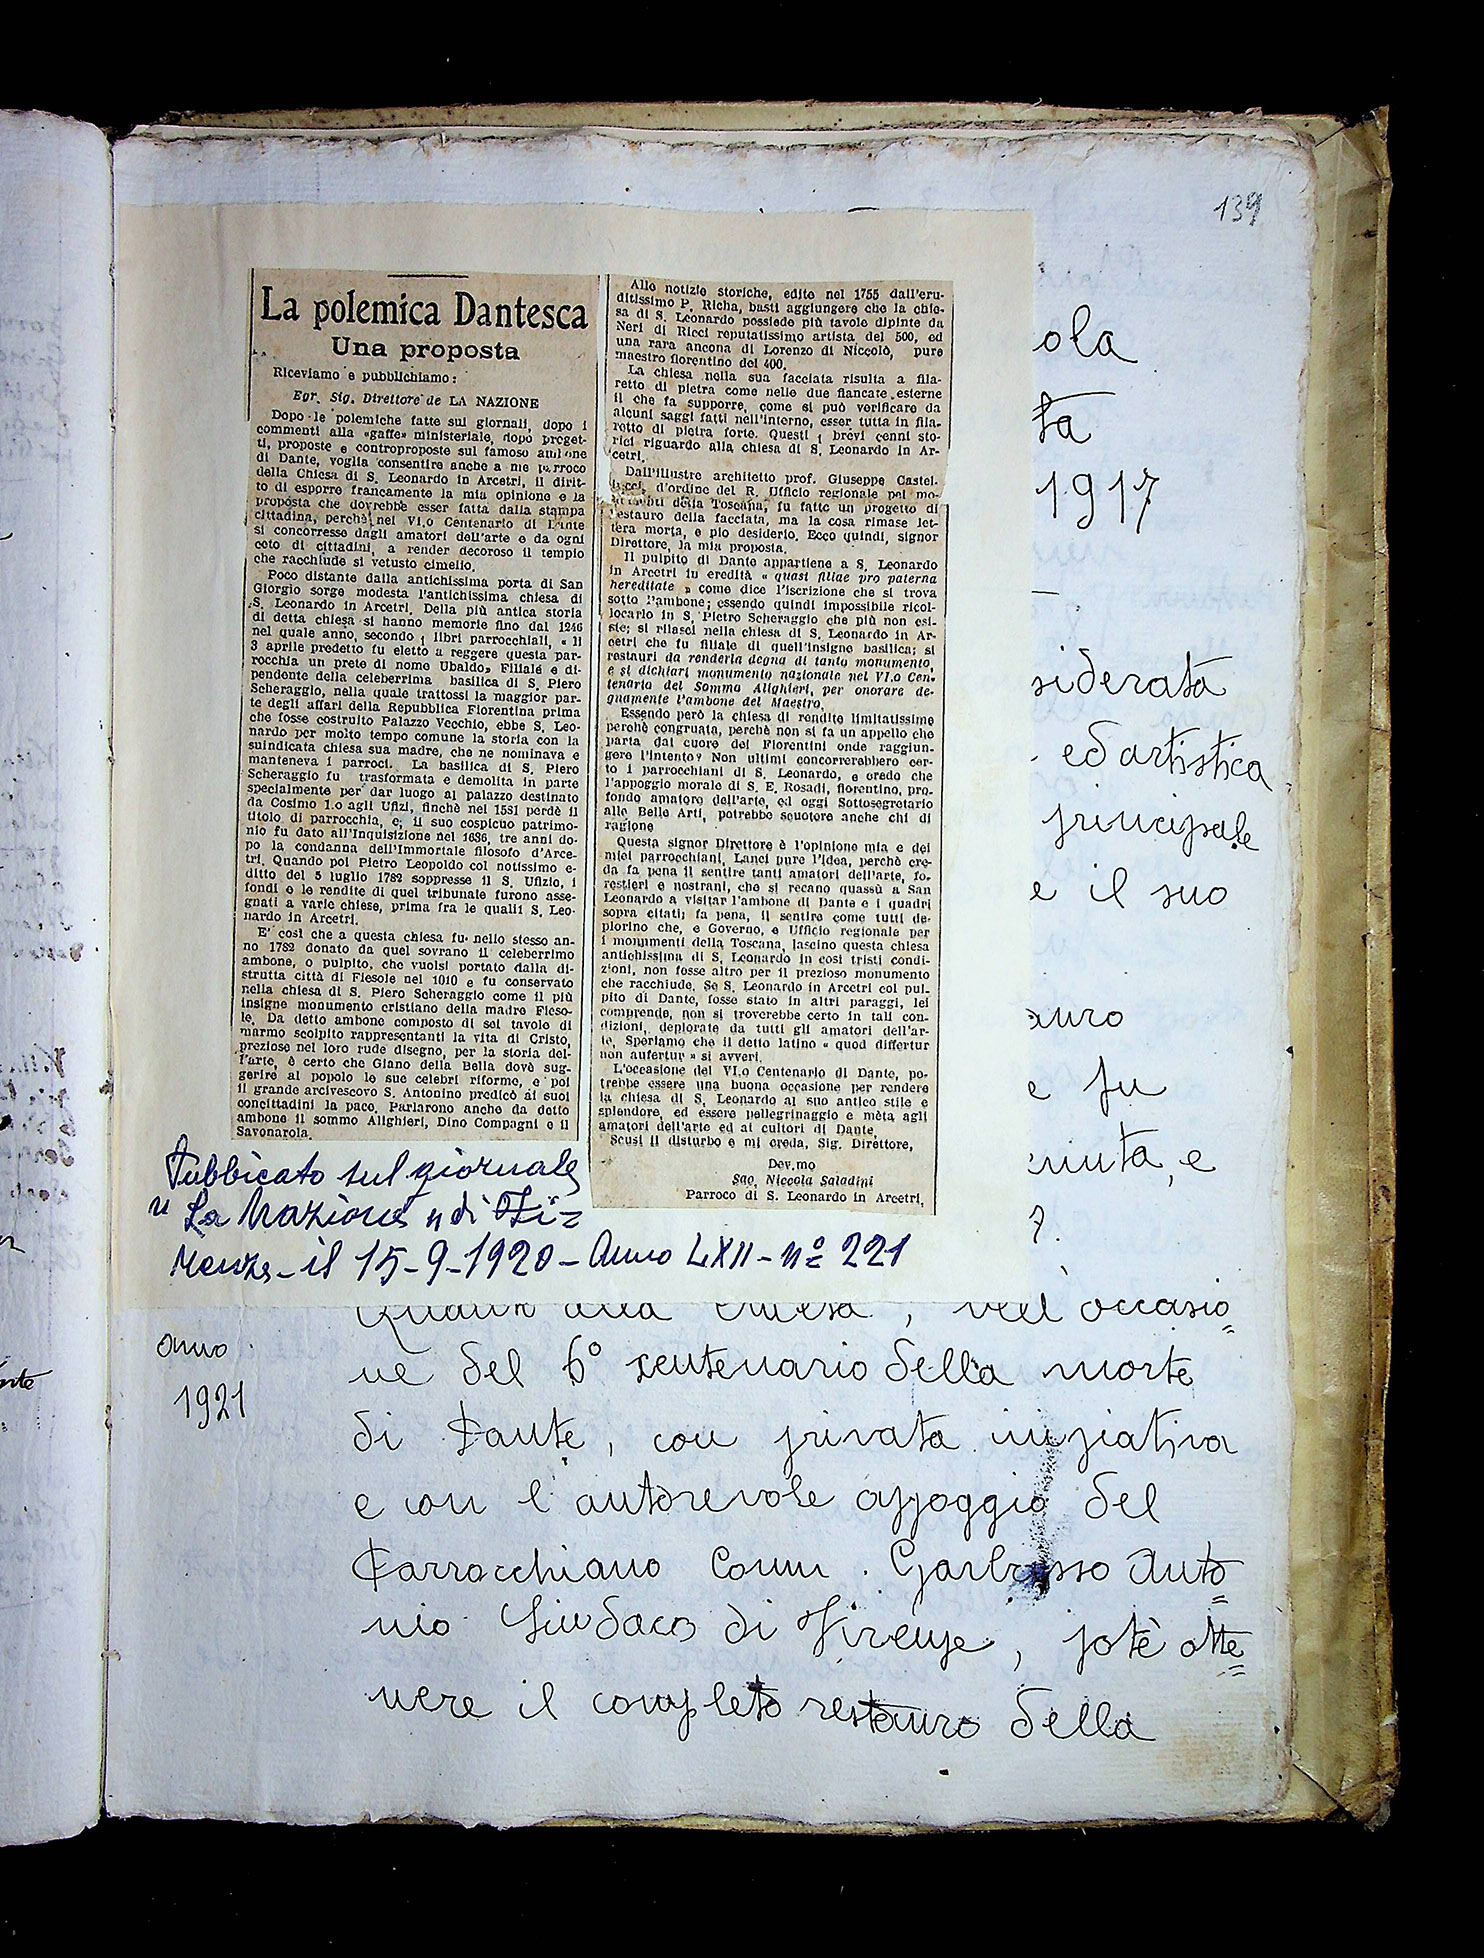 139
La polemica Dantesca
Una proposta
Riceviamo e pubblichiamo:
Egr. Sig. Direttore de LA NAZIONE
Dopo le polemiche fatte sui giornali, dopo i
commenti alla «gaffe» ministeriale, dopo proget-
ti, proposte e controproposte sul famoso ambone
di Dante, voglia consentire anche a me parroco
della Chiesa di S. Leonardo in Arcetri, il dirit-
to di esporre francamente la mia opinione e la
proposta che dovrebbe esser fatta dalla stampa
cittadina, perchè nel VI.o Centenario di Dante
si concorresse dagli amatori dell'arte e da ogni
ceto di cittadini, a render decoroso il tempio
che racchiude sì vetusto cimelio.
Poco distante dalla antichissima porta di San
Giorgio sorge modesta l'antichissima chiesa di
S. Leonardo in Arcetri. Della più antica storia
di detta chiesa si hanno memorie fino dal 1246
nel quale anno, secondo i libri parrocchiali, « Il
3 aprile predetto fu eletto a reggere questa par-
rocchia un prete di nome Ubaldo» Filiale e di-
pendente della celeberrima basilica di S. Piero
Scheraggio, nella quale trattossi la maggior par-
te degli affari della Repubblica Fiorentina prima
che fosse costruito Palazzo Vecchio, ebbe S. Leo-
nardo per molto tempo comune la storia con la
suindicata chiesa sua madre, che ne nominava e
manteneva i parroci. La basilica di S. Piero
Scheraggio fu trasformata e demolita in parte
specialmente per dar luogo al palazzo destinato
da Cosimo 1.o agli Ufizi, finchè nel 1581 perdè il
titolo di parrocchia, e; il suo cospicuo patrimo-
nio fu dato all'Inquisizione nel 1636, tre anni do-
po la condanna dell'Immortale filosofo d'Arce-
tri. Quando poi Pietro Leopoldo col notissimo e-
ditto del 5 luglio 1782 soppresse il S. Ufizio, i
fondi e le rendite di quel tribunale furono asse-
gnati a varie chiese, prima fra le quali S. Leo-
nardo in Arcetri.
E' così che a questa chiesa fu nello stesso an-
no 1782 donato da quel sovrano il celeberrimo
ambone, o pulpito, che vuolsi portato dalla di-
strutta città di Fiesole nel 1010 e fu conservato
nella chiesa di S. Piero Scheraggio come il più
insigne monumento cristiano della madre Fieso-
le. Da detto ambone composto di sei tavole di
marmo scolpito rappresentanti la vita di Cristo,
prezioso nel loro rude disegno, per la storia del-
l'arte, è certo che Giano della Bella dovè sug-
gerire al popolo le sue celebri riforme, e poi
il grande arcivescovo S. Antonino predicò ai suoi
concittadini la pace. Parlarono anche da detto
ambone il sommo Alighieri, Dino Compagni e il
Savonarola.
Alle notizie storiche, edite nel 1755 dall'eru-
ditissimo P. Richa, basti aggiungere che la chie-
sa di S. Leonardo possiede più tavole dipinte da
Neri di Ricci reputatissimo artista del 500, ed
una rara ancona di Lorenzo di Niccolò, pure
maestro fiorentino del 400.
La chiesa nella sua facciata risulta a fila-
retto di pietra come nelle due fiancate esterne
il che fa supporre, come si può verificare da
alcuni saggi fatti nell'interno, esser tutta in fila-
retto di pietra forte. Questi i brevi cenni sto-
rici riguardo alla chiesa di S. Leonardo in Ar-
cetri.
Dall'illustre architetto prof. Giuseppe Castel-
lucci, d'ordine del R. Ufficio regionale pei mo-
numenti della Toscana, fu fatto un progetto di
restauro della facciata, ma la cosa rimase let-
tera morta, e pio desiderio. Ecco quindi, signor
Direttore, la mia proposta.
Il pulpito di Dante appartiene a S. Leonardo
in Arcetri in eredità « quasi filiae pro paterna
hereditate » come dice l'iscrizione che si trova
sotto l'ambone; essendo quindi impossibile ricol-
locarlo in S. Pietro Scheraggio che più non esi-
ste; si rilasci nella chiesa di S. Leonardo in Ar-
cetri che fu filiale di quell'insigne basilica; si
restauri da renderla degna di tanto monumento,
e si dichiari monumento nazionale nel VI.o Cen-
tenario del Sommo Alighieri, per onorare de-
gnamente l'ambone del Maestro.
Essendo però la chiesa di rendite limitatissime
perchè congruata, perchè non si fa un appello che
parta dal cuore dei Fiorentini onde raggiun-
gere l'intento? Non ultimi concorrerebbero cer-
to i parrocchiani di S. Leonardo, e credo che
l'appoggio morale di S. E. Rosadi, fiorentino, pro-
fondo amatore dell'arte, ed oggi Sottosegretario
alle Belle Arti, potrebbe scuotere anche chi di
ragione
Questa signor Direttore è l'opinione mia e dei
miei parrocchiani. Lanci pure l'idea, perchè cre-
da fa pena il sentire tanti amatori dell'arte, fo-
restieri e nostrani, che si recano quassù a San
Leonardo a visitar l'ambone di Dante e i quadri
sopra citati; fa pena, il sentire come tutti de-
plorino che, e Governo, e Ufficio regionale per
i monumenti della Toscana, lascino questa chiesa
antichissima di S. Leonardo in così tristi condi-
zioni, non fosse altro per il prezioso monumento
che racchiude. Se S. Leonardo in Arcetri col pul-
pito di Dante, fosse stato in altri paraggi, lei
comprende, non si troverebbe certo in tali con-
dizioni, deplorate da tutti gli amatori dell'ar-
te. Speriamo che il detto latino « quod differtur
non aufertur » si avveri.
L'occasione del VI.o Centenario di Dante, po-
trebbe essere una buona occasione per rendere
la chiesa di S. Leonardo al suo antico stile e
splendore, ed essere pellegrinaggio e mèta agli
amatori dell'arte ed ai cultori di Dante.
Scusi il disturbo e mi creda, Sig. Direttore,
Dev.mo
Sac. Niccola Saladini
Parroco di S. Leonardo in Arcetri.
Pubbicato sul giornale
"La Nazione" di Fi=
renze - il 15-9-1920 - Anno LXII - nº 221
ola
ta
1917
siderata
ed artistica
principale
e il suo
auro
e fu
enuta, e
7.
Quanto alla chiesa, nell'occasio=
Anno
1921
ne del 6º centenario della morte
di Dante, con privata iniziativa
e con l'autorevole appoggio del
Parrocchiano Comm. Garbasso Anto=
nio Sindaco di Firenze, potè otte=
nere il completo restauro della